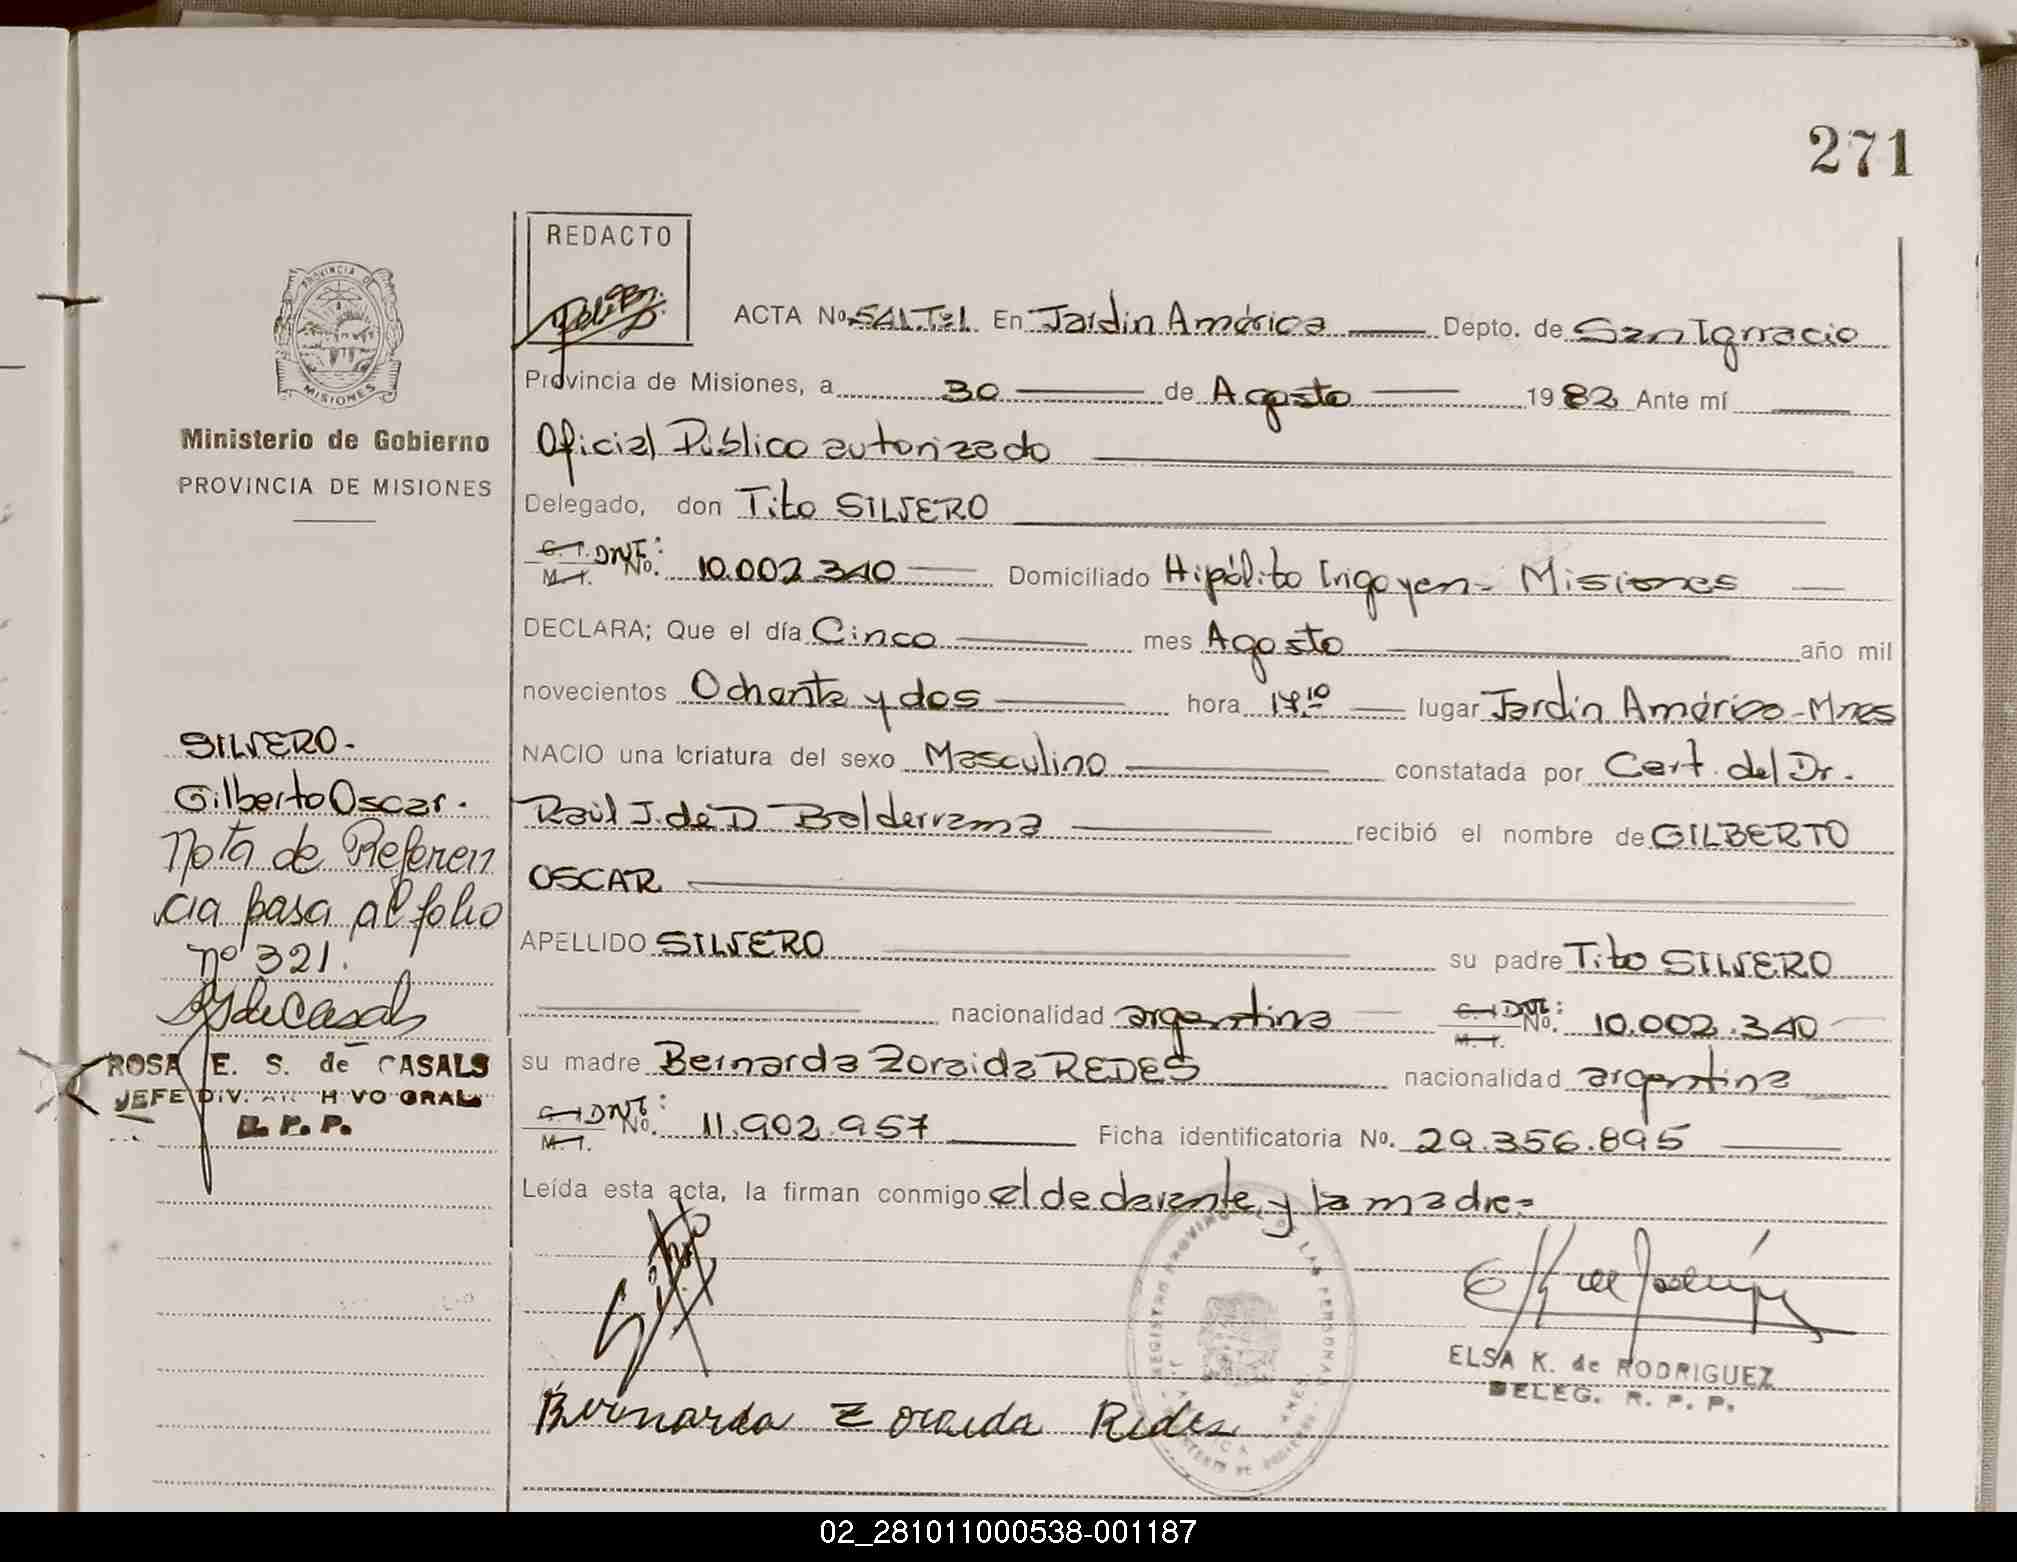 271
REDACTO
PROVINCIA DE
MISIONES
Ministerio de Gobierno
PROVINCIA DE MISIONES
ACTA No. 541.Tº1. En Jardin América Depto. de San Ignacio
Provincia de Misiones, a 30 de Agosto 1982 Ante mí
Oficial Público autorizado
Delegado, don Tito SILVERO
C. I. DNI: M. I. No. 10.002.340 Domiciliado Hipólito Irigoyen - Misiones
DECLARA; Que el día Cinco mes Agosto año mil
novecientos Ochenta y dos hora 17.10 lugar Jardin América - Mnes
NACIO una criatura del sexo Masculino constatada por Cert. del Dr.
Raúl J. de D Balderrama recibió el nombre de GILBERTO
OSCAR
APELLIDO SILVERO su padre Tito SILVERO
nacionalidad argentina C. I. DNI: M. I. No. 10.002.340
su madre Bernarda Zoraida REDES nacionalidad argentina
C. I. DNI: M. I. No. 11.902.957 Ficha identificatoria No. 29.356.895
Leída esta acta, la firman conmigo el declarante, y la madre=
SILVERO.-
Gilberto Oscar.
Nota de Referen
cia pasa al folio
nº 321.
ROSA E. S. de CASALS
JEFE DIV. ARCHIVO GRAL.
R. P. P.
Tito
Bernarda Zoraida Redes
REGISTRO PROVINCIAL DE LAS PERSONAS
ELSA K. de RODRIGUEZ
DELEG. R. P. P.
02_281011000538-001187